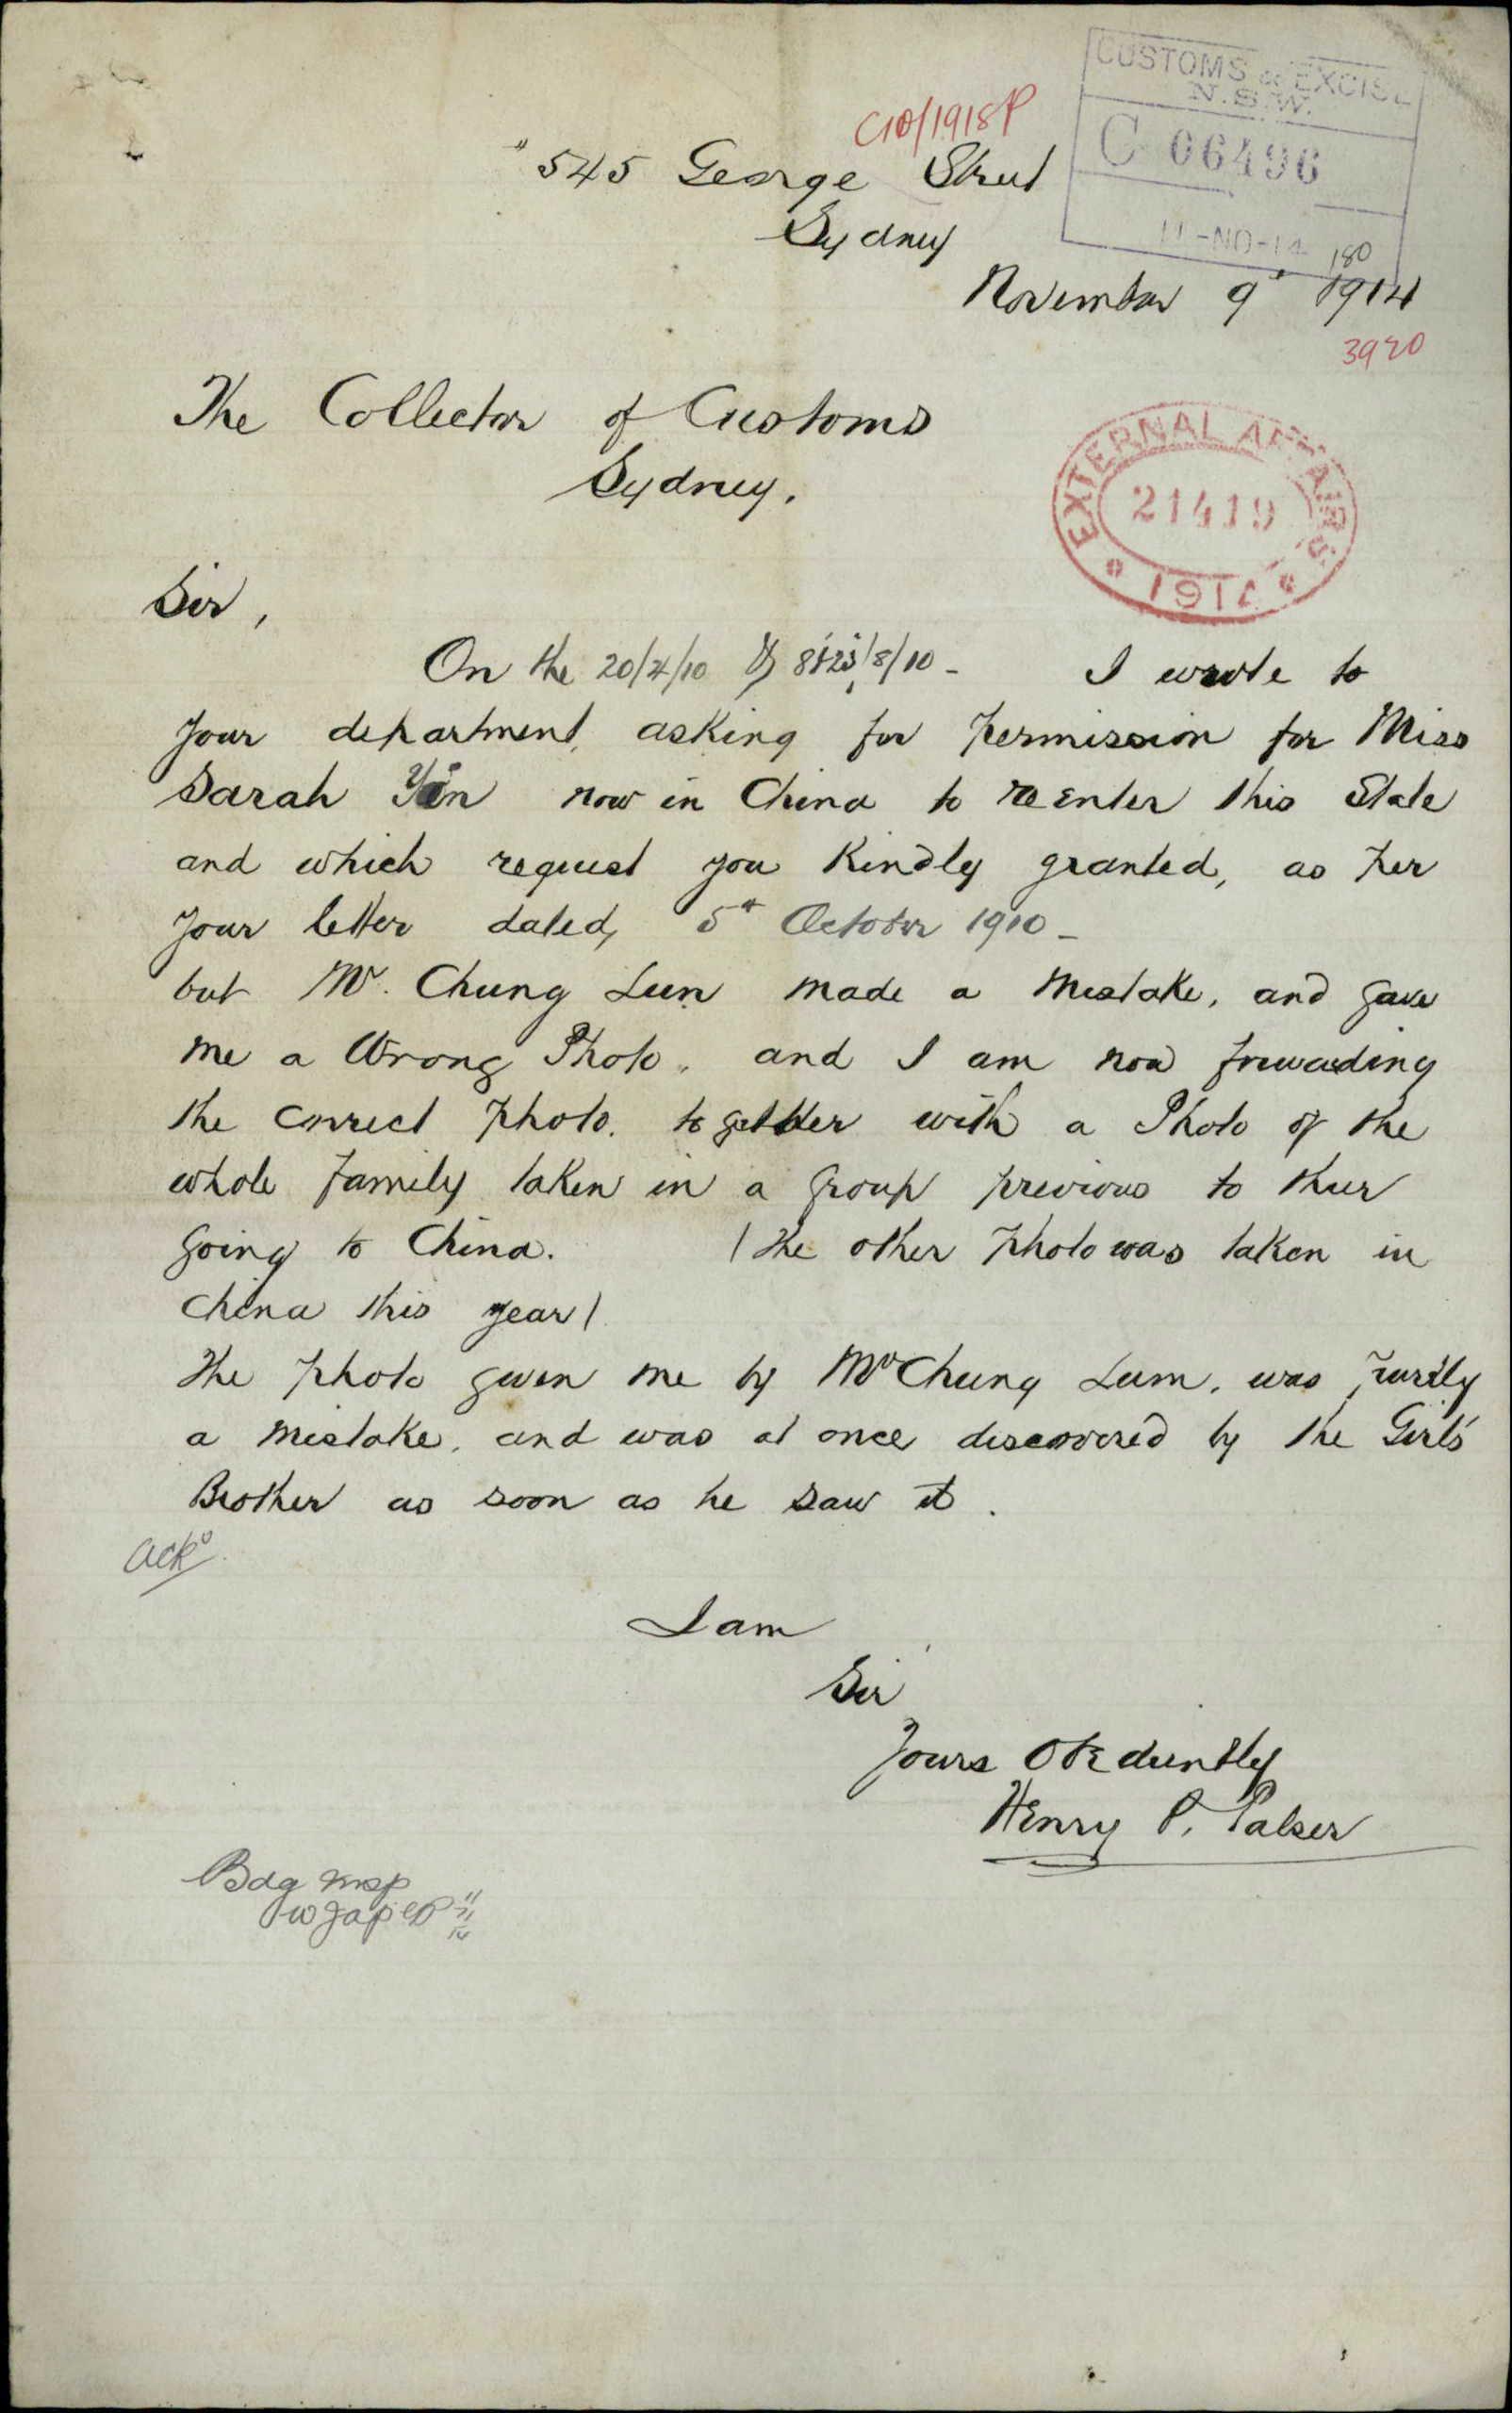 CUSTOMS & EXCISE
N.S.W.
C 06496
11-NO-14
C10/1918P
545 George Street
Sydney
180
November 9th 1914
3920
The Collector of Customs
Sydney.
EXTERNAL AFFAIRS
21419
1914
Sir,
On the 20/4/10 & 8/10 - I wrote to
your department, asking for permission for Miss
Sarah Yin now in China to re enter this State
and which request you Kindly granted, as per
your letter dated, 5th October 1910 -
but Mr. Chung Lun made a mistake, and gave
me a Wrong Photo, and I am now forwarding
the correct photo. together with a Photo of the
whole family taken in a group previous to their
going to China. (the other photo was taken in
China this year)
The photo given me by Mr Chung Lum, was purely
a mistake, and was at once discovered by the Girls'
Brother as soon as he saw it.
ackd
I am
Sir
Yours Obediently
Henry P. Palser